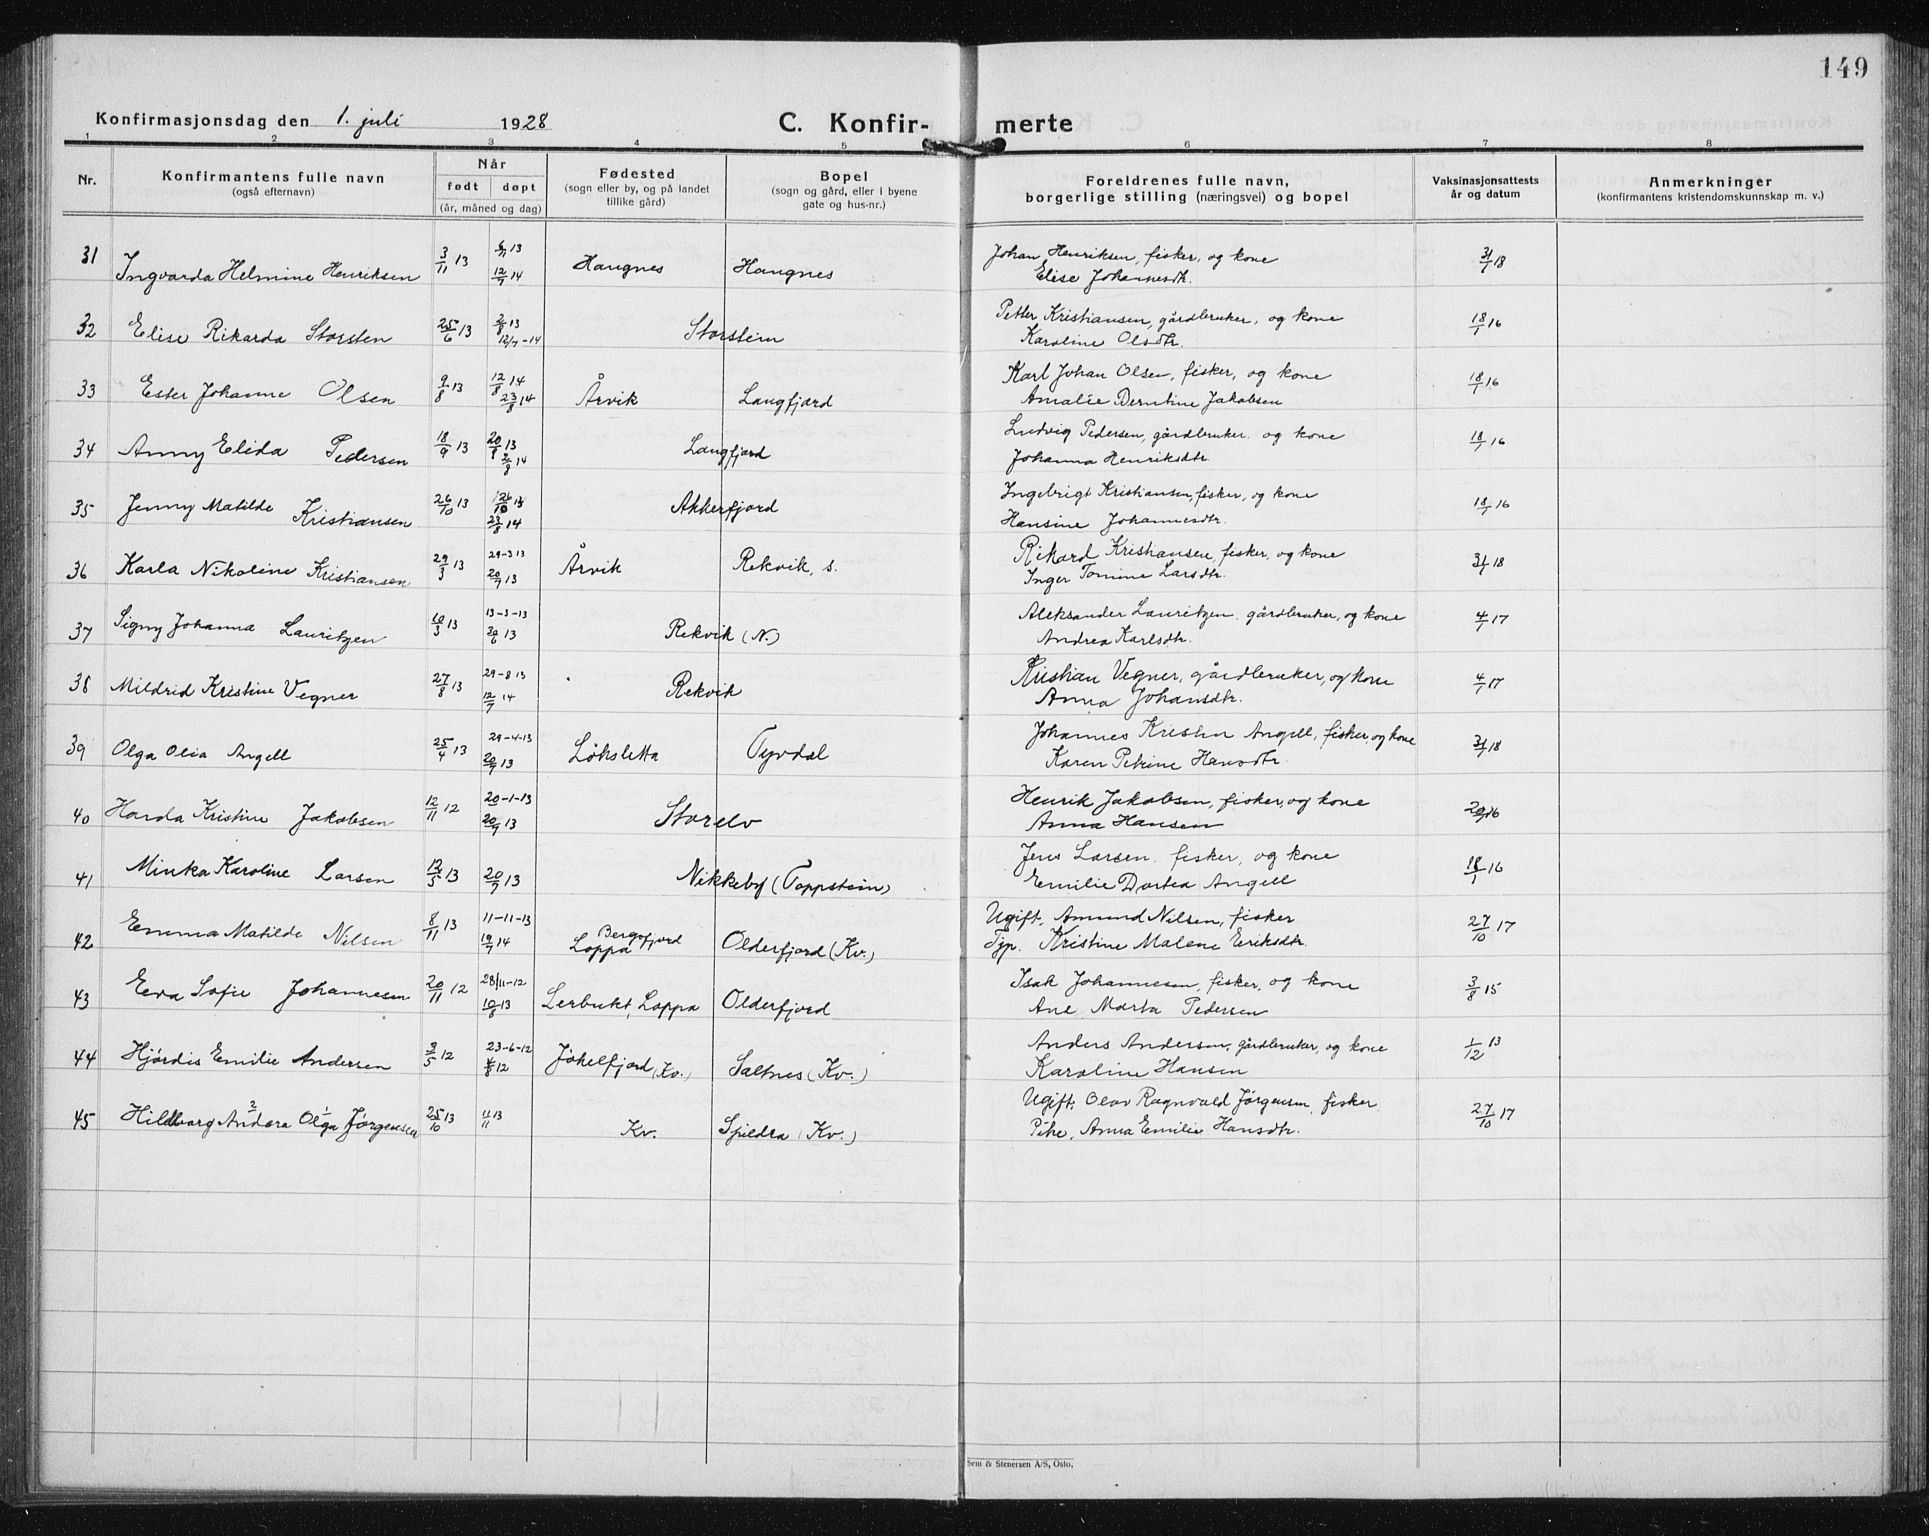 149
Konfirmasjonsdag den 1. juli 1928 C. Konfir- merte
1 2 3 4 5 6 7 8
Nr. Konfirmantens fulle navn (også efternavn) Når født døpt (år, måned og dag) Fødested (sogn eller by, og på landet tillike gård) Bopel (sogn og gård, eller i byene gate og hus-nr.) Foreldrenes fulle navn, borgerlige stilling (næringsvei) og bopel Vaksinasjonsattests år og datum Anmerkninger (konfirmantens kristendomskunnskap m. v.)
31 Ingvarda Helmine Henriksen 3/11 13 6/11 13 12/7 14 Haugnes Haugnes Johan Henriksen, fisker, og kone 31/1 18
Elise Johannesdtr.
32 Elise Rikarda Storsten 25/6 13 2/8 13 12/7-14 Storstein Petter Kristiansen, gårdbruker, og kone 18/1 16
Karoline Olsdtr.
33 Ester Johanne Olsen 9/8 13 12/8 14 23/8 14 Årvik Langfjord Karl Johan Olsen, fisker, og kone 18/1 16
Amalie Berntine Jakobsen
34 Anny Elida Pedersen 18/9 13 20/9 13 2/8 14 Langfjord Ludvig Pedersen, gårdbruker, og kone 18/1 16
Johanna Henriksdtr.
35 Jenny Matilde Kristiansen 26/10 13 26/10 13 23/8 14 Akkerfjord Ingebrigt Kristiansen, fisker, og kone 18/1 16
Hansine Johannesdtr.
36 Karla Nikoline Kristiansen 29/3 13 29-3 13 20/7 13 Årvik Rekvik, s. Rikard Kristiansen, fisker, og kone 31/1 18
Inger Tomine Larsdtr.
37 Signy Johanna Lauritzen 10/3 13 13-3-13 29/6 13 Rekvik (N.) Aleksander Lauritzen, gårdbruker, og kone 4/1 17
Andrea Karlsdtr.
38 Mildrid Kristine Vegner 27/8 13 29-8 13 12/7 14 Rekvik Kristian Vegner, gårdbruker, og kone 4/1 17
Anna Johansdtr.
39 Olga Olia Angell 25/4 13 29-4-13 20/7 13 Løksletta Tyvdal Johannes Kristin Angell, fisker, og kone 31/1 18
Karen Petrine Hansdtr.
40 Harda Kristine Jakobsen 12/11 12 20-1-13 20/9 13 Storelv Henrik Jakobsen, fisker, og kone 20/9 16
Anna Hansen
41 Minka Karoline Larsen 12/5 13 20/7 13 Nikkeby (Toppstein) Jens Larsen, fisker, og kone 18/1 16
Emilie Dortea Angell
42 Emma Matilde Nilsen 8/11 13 11-11-13 19/7 14 Bergsfjord Loppa Olderfjord (Kv.) Ugift, Amund Nilsen, fisker 27/10 17
Tjp. Kristine Malene Eriksdtr.
43 Eva Sofie Johannesen 20/11 12 28/11-12 10/8 13 Lerbukt, Loppa Olderfjord Isak Johannesen, fisker, og kone 3/8 15
Ane Marta Pedersen
44 Hjørdis Emilie Andersen 3/5 12 23-6-12 4/8 12 Jøkelfjord (Kv.) Saltnes (Kv.) Anders Andersen, gårdbruker, og kone 1/12 13
Karoline Hansen
45 Hildborg Andora Olga Jørgensen 25/10 13 11/11 13 Kv. Spildra (Kv.) Ugift, Olav Ragnvald Jørgensen, fisker 27/10 17
Pike, Anna Emilie Hansdtr.
Sem & Stenersen A/S, Oslo.